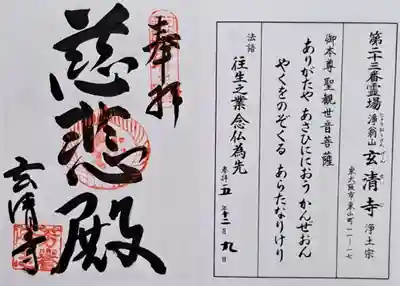 第二十三番霊場
浄翁山
玄清寺
浄土宗
東大阪市東山町一一-一七
御本尊 聖観世音菩薩
ありがたや あさひににおう かんぜおん
やくをのぞくる あらたなりけり
法語
往生之業 念仏為先
参拝 五年十二月九日
奉拝
慈悲殿
玄清寺